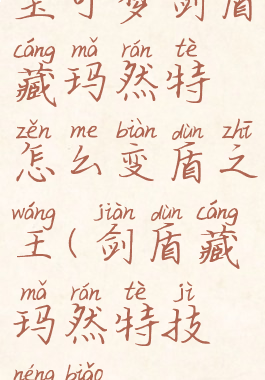 宝可梦剑盾
cáng mǎ rán tè
藏玛然特
zěn me biàn dùn zhī
怎么变盾之
wáng jiàn dùn cáng
王(剑盾藏
mǎ rán tè jì
玛然特技
néng biǎo